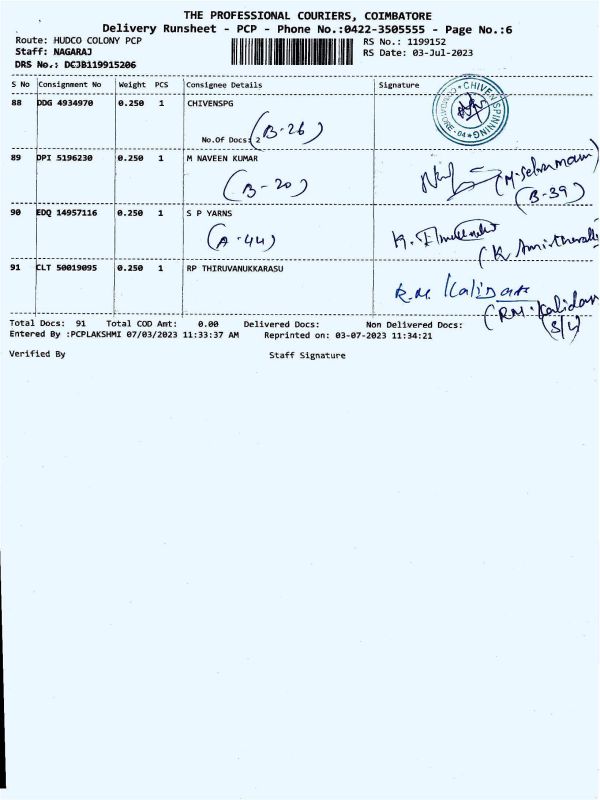 THE PROFESSIONAL COURIERS, COIMBATORE
Delivery Runsheet - PCP - Phone No.:0422-3505555 - Page No.:6
Route: HUDCO COLONY PCP RS No.: 1199152
Staff: NAGARAJ RS Date: 03-Jul-2023
DRS No.: DCJB119915206
S No Consignment No Weight PCS Consignee Details Signature
88 DDG 4934970 0.250 1 CHIVENSPG
No.Of Docs: 2 (B-26)
89 DPI 5196230 0.250 1 M NAVEEN KUMAR
(B-20) (B-39)
90 EDQ 14957116 0.250 1 S P YARNS
(A-44)
91 CLT 50019095 0.250 1 RP THIRUVANUKKARASU
R.M. Kalidass
(RM. Kalidass
Total Docs: 91 Total COD Amt: 0.00 Delivered Docs: Non Delivered Docs:
Entered By :PCPLAKSHMI 07/03/2023 11:33:37 AM Reprinted on: 03-07-2023 11:34:21
Verified By Staff Signature